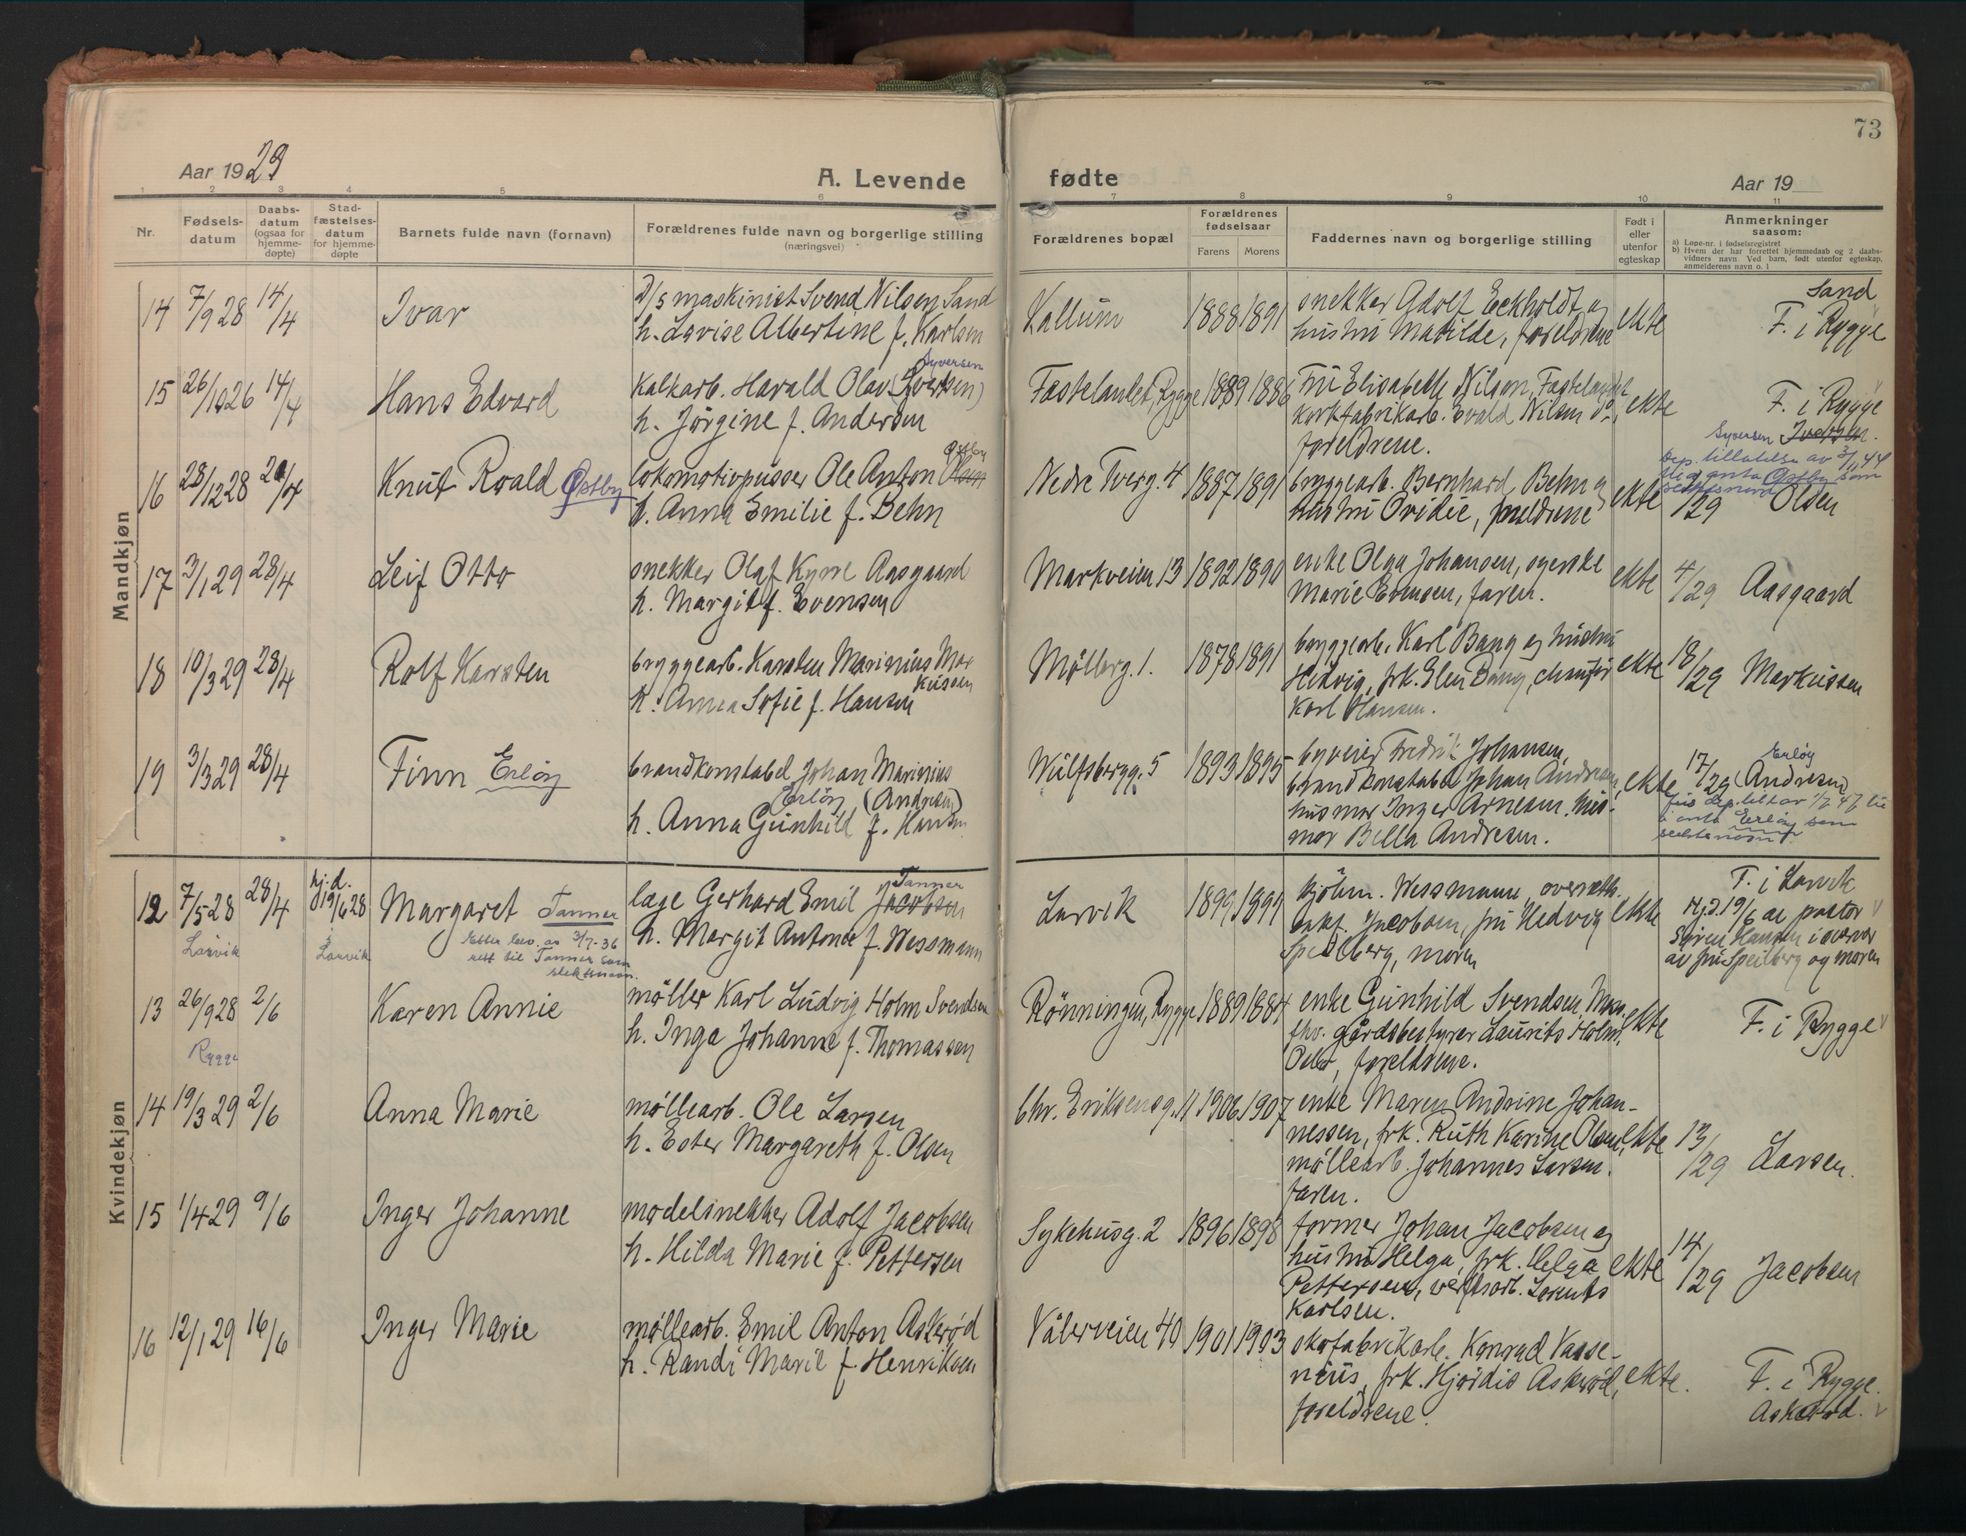 73
Aar 1929
A. Levende
fødte
Aar 19
1 2 3 4 5 6 7 8 9 10 11
Nr.
Fødsels-
datum
Daabs-
datum
(ogsaa for
hjemme-
døpte)
Stad-
fæstelses-
datum
for hjemme-
døpte
Barnets fulde navn (fornavn)
Forældrenes fulde navn og borgerlige stilling
(næringsvei)
Forældrenes bopæl
Forældrenes
fødselsaar
Farens Morens
Faddernes navn og borgerlige stilling
Født i
eller
utenfor
egteskap
Anmerkninger
saasom:
a) Løpe-nr. i fødselsregistret
b) Hvem der har forrettet hjemmedaab og 2 daabs-
vidners navn. Ved barn, født utenfor egteskap,
anmelderens navn o. l
Mandkjøn
14 7/9 28 14/4 Ivar
D/s maskinist Svend Nilsen Sand
h. Lovise Albertine f. Karlsen
Kallum 1888 1891
snekker Adolf Eckholdt og
hustru Matilde, foreldrene
ekte
Sand
F. i Rygge
15 26/10 26 14/4 Hans Edvard
Syversen
kalkarb. Harald Olav (Iversen)
h. Jørgine f. Andersen
Fastelandet, Rygge 1889 1886
Fru Elisabeth Nilsen, Fastelandet
korkfabrikarb. Evald Nilsen do.,
foreldrene.
ekte
F. i Rygge
Syversen Iversen.
16 28/12 28 20/4 Knut Roald Østby
Østby
lokomotivpusser Ole Anton Olsen
h. Anna Emilie f. Behn
Nedre Tverg. 4 1887 1891
bryggearb. Bernhard Behn og
hustru Ovidie, foreldrene
ekte
Dep. tillatelse av 3/1 44
til å anta Østby som
slektsnavn
/29 Olsen
17 3/1 29 28/4 Leif Otto
snekker Olaf Kyrre Aasgaard
h. Margit f. Evensen
Markveien 13 1892 1890
enke Olga Johansen, syerske
Marie Evensen, faren.
ekte
4/29 Aasgaard
18 10/3 29 28/4 Rolf Karsten
bryggearb. Karsten Marinius Mar
kussen
h. Anna Sofie f. Hansen
Mølleg. 1. 1878 1891
bryggearb. Karl Bang og hustru
Hedvig, frk. Elen Bang, chauffør
Karl Hansen.
ekte
18/29 Markussen
19 3/3 29 28/4 Finn Erløy
brandkonstabel Johan Marinius
Erløy (Andresen)
h. Anna Gunhild f. Hansen
Wulfsbergg. 5 1893 1895
byveier Fredrik Johansen,
brandkonstabel Johan Andresen,
husmor Inger Arnesen, hus-
mor Bella Andresen.
ekte
Erløy
17/29 (Andresen)
Jus. dep. till. av 1/7 47 til
å anta Erløy som
slektsnavn.
Kvindekjøn
12 7/5 28 28/4 hj. d.
19/6 28
Larvik
Larvik
Margaret Tanner
Etter bev. av 3/7-36
rett til Tanner som
slektsnavn.
Tanner
læge Gerhard Emil Jacobsen
h. Margit Antonie f. Wessmann
Larvik 1899 1899
kjøbm. Wessmann, overretts.
enkef. Jacobsen, fru Hedvig
Speilberg, moren
ekte
F. i Larvik
Hj.d. 19/6 av pastor
Søren Hansen i nærvær
av fru Speilberg og moren
13 26/9 28 2/6 Karen Annie
Rygge
møller Karl Ludvig Holm Svendsen
h. Inga Johanne f. Thomassen
Rønningen, Rygge 1889 1884
enke Gunhild Svendsen, Moss,
fhv. gårdsbestyrer Laurits Holm,
Oslo, foreldrene.
ekte
F. i Rygge
14 19/3 29 2/6 Anna Marie
møllearb. Ole Larsen
h. Ester Margareth f. Olsen
Chr. Eriksensg. 11 1906 1907
enke Maren Andrine Johan-
nessen, frk. Ruth Karine Olsen,
møllearb. Johannes Larsen.
faren.
ekte
13/29 Larsen.
15 1/4 29 9/6 Inger Johanne
modelsnekker Adolf Jacobsen
h. Hilda Marie f. Pettersen
Sykehusg. 2 1896 1898
former Johan Jacobsen og
hustru Helga, frk. Helga
Pettersen, verftsarb. Lorents
Karlsen.
ekte
14/29 Jacobsen
16 12/1 29 16/6 Inger Marie
møllearb. Emil Anton Askerød
h. Randi Marie f. Henriksen
Vålerveien 40 1901 1903
skofabrikarb. Konrad Vaase-
nius, frk. Hjørdis Askerød,
foreldrene.
ekte.
F. i Rygge.
Askerød.